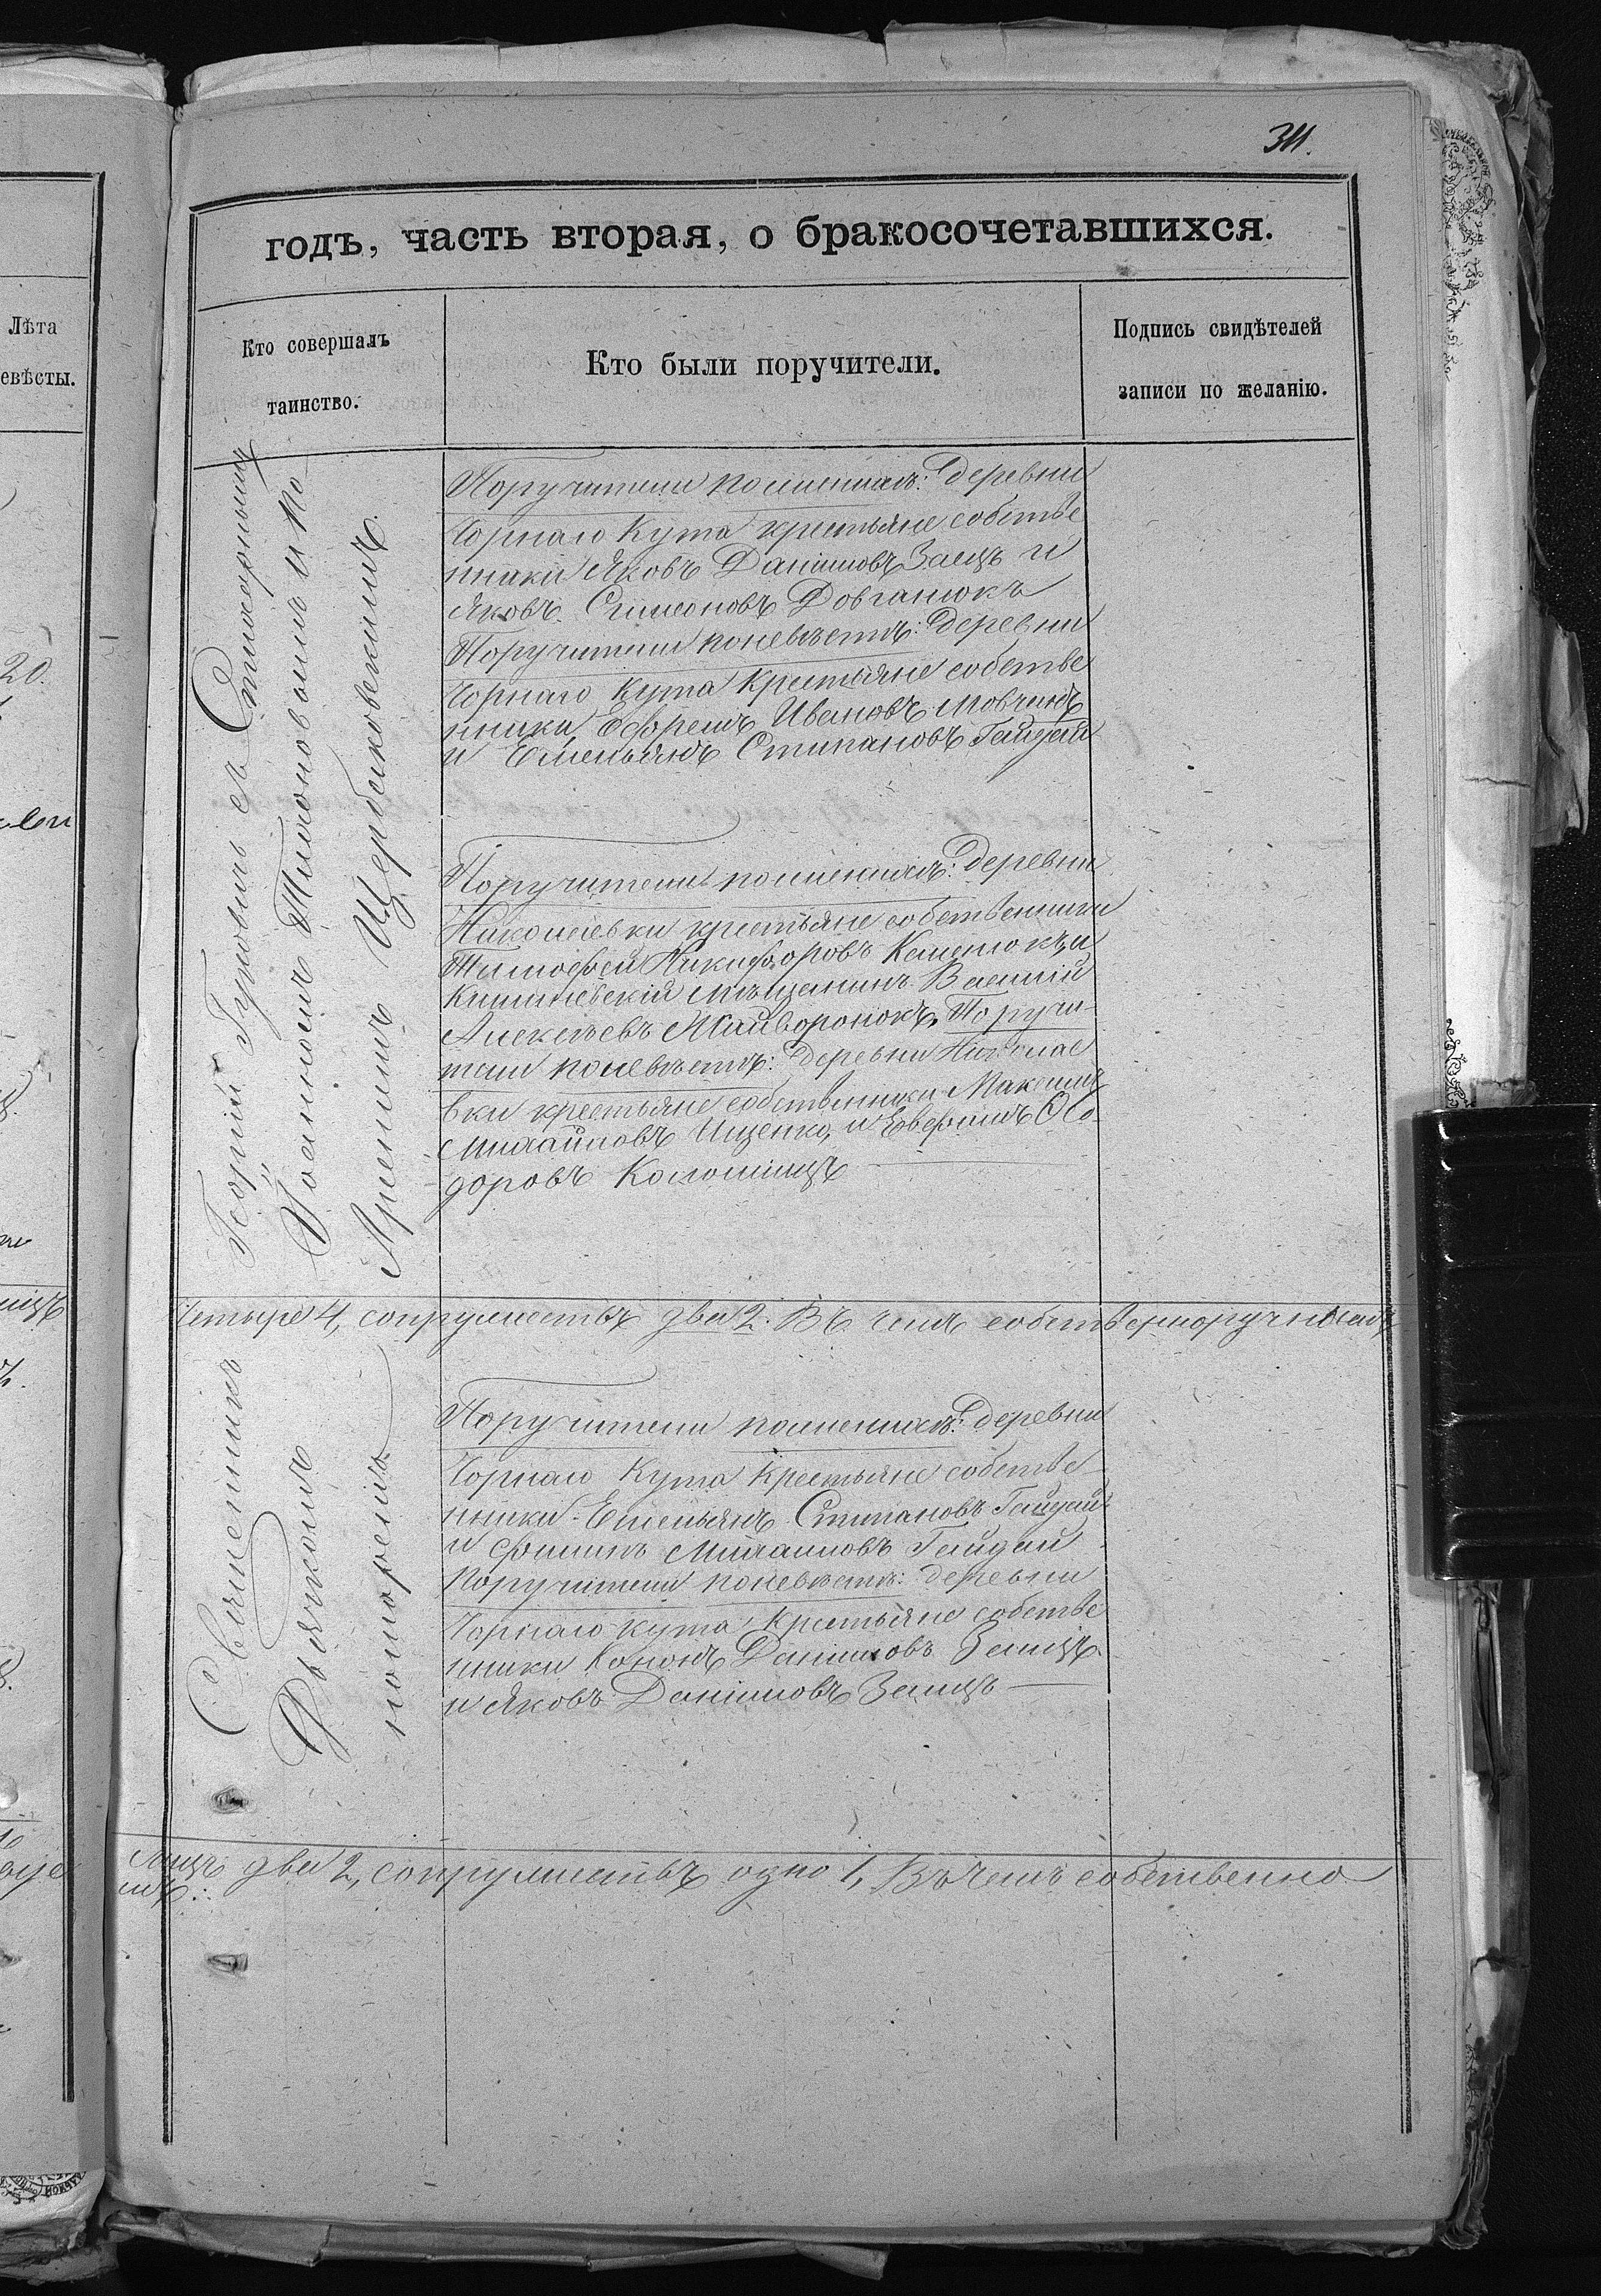 311.
годъ, часть вторая, о бракосочетавшихся.
Лѣта
евѣсты.
Кто совершалъ
таинство.
Кто были поручители.
Подпись свидѣтелей
записи по желанію.
20.
Священникъ Георгій Гуровичъ съ Стихарнымъ
Дьячкомъ Іоанномъ Тихоновымъ и по
номаремъ Арсеніемъ Щербаковскимъ.
Поручители по женихѣ: деревни
Чорнаго Кута крестьяне собстве
нники Яковъ Даніиловъ Заецъ и
Яковъ Симеоновъ Довганюкъ
Поручители по невѣстѣ: деревни
Чорнаго Кута крестьяне собстве
нники, Ефремъ Ивановъ Мовчанъ
и Емельянъ Стипановъ Гайдай
Поручители по женихѣ: деревни
Николаевки крестьяне собственники
Тимофей Никифоровъ Каменюкъ, и
Кишиневскій мѣщанинъ Василій
Алексѣевъ Жайворонокъ, Поручи-
тели по невѣстѣ: деревни Николае
вки крестьяне собственники Максимъ
Михайловъ Ищенко, и Еверфилъ Ѳео-
доровъ Коломіицъ
Четыре 4, супружествъ два 2. Въ чемъ собственноручнымъ
Поручители по женихѣ: деревни
Чорнаго Кута крестьяне собстве-
нники Емельянъ Стипановъ Гайдай
и Филипъ Михаиловъ Гайдай
Поручители по невѣстѣ: деревни
Чорнаго Кута крестьяне собстве
нники Кононъ Даніиловъ Заицъ
и Яковъ Даніиловъ Заицъ
Лицъ два 2, супружествъ одно 1, Въ чемъ собственно